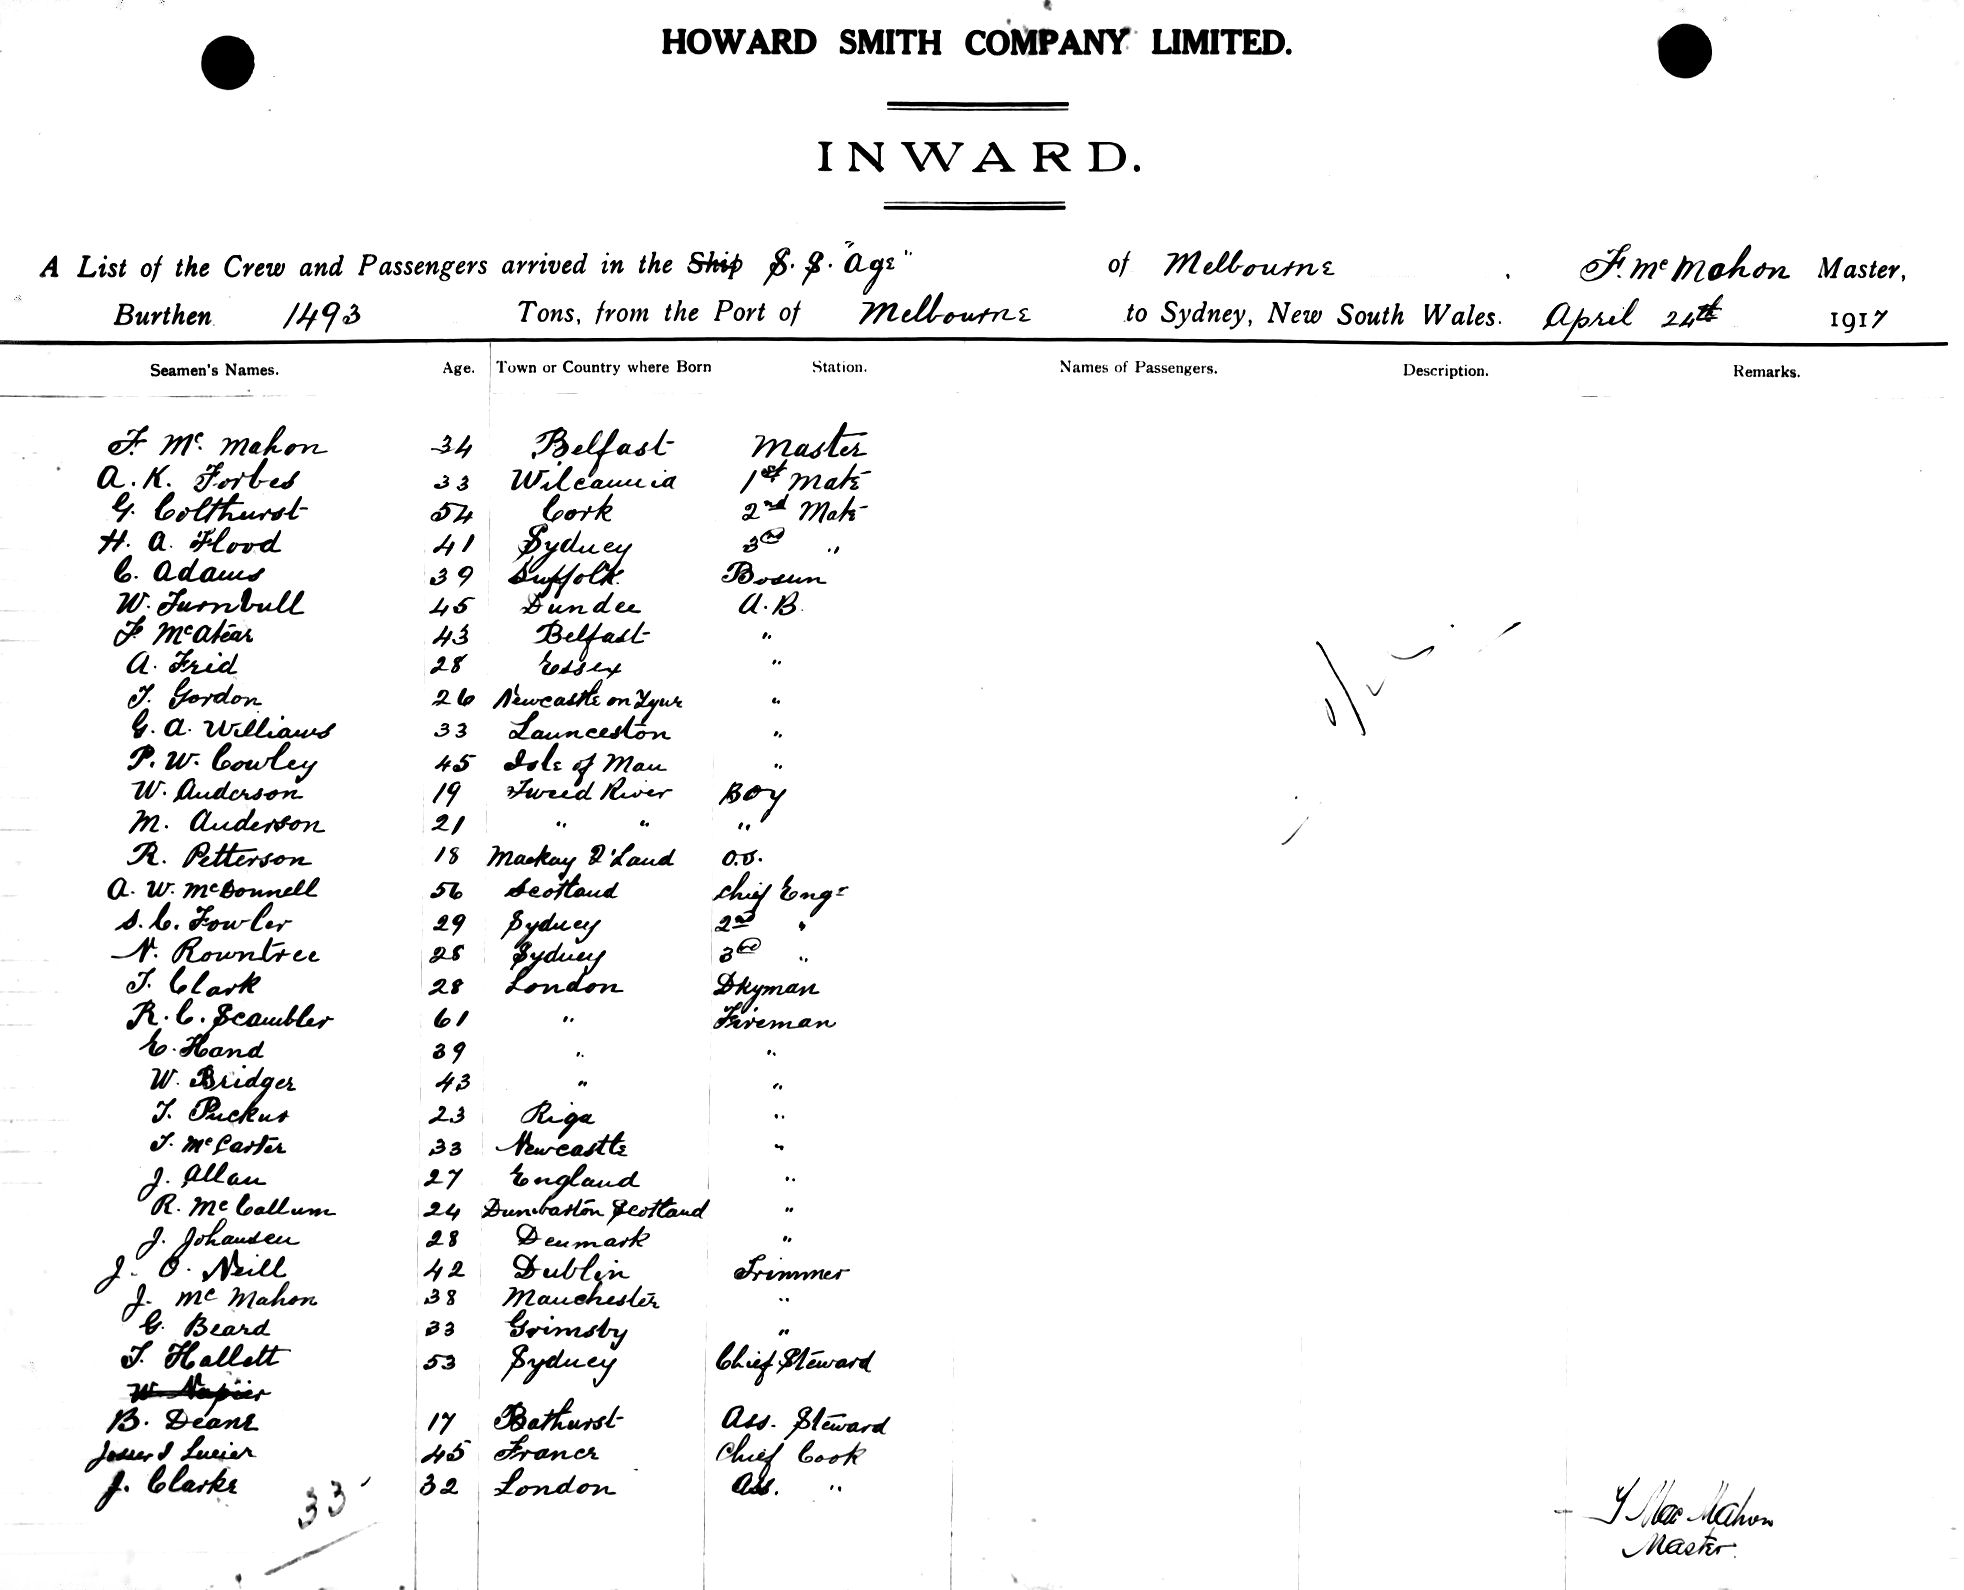 HOWARD SMITH COMPANY LIMITED.
INWARD.
A List of the Crew and Passengers arrived in the Ship S.S. "Age" of Melbourne F. Mc Mahon Master,
Burthen 1493 Tons, from the Port of Melbourne to Sydney, New South Wales. April 24th 1917
Seamen's Names. Age. Town or Country where Born Station. Names of Passengers. Description. Remarks.
F. Mc. Mahon 34 Belfast Master
A. K. Forbes 33 Wilcannia 1st Mate
G. Colthurst 54 Cork 2nd Mate
H. A. Flood 41 Sydney 3rd "
C. Adams 39 Suffolk Bosun
W. Turnbull 45 Dundee A.B.
F. McAtear 43 Belfast "
A. Frid 28 Essex "
T. Gordon 26 Newcastle on Tyne "
G. A. Williams 33 Launceston "
P. W. Cowley 45 Isle of Man "
W. Anderson 19 Tweed River Boy
M. Anderson 21 " " "
R. Petterson 18 Mackay Q'Land O.S.
A. W. McDonnell 56 Scotland Chief Engr
S. C. Fowler 29 Sydney 2nd "
N. Rowntree 28 Sydney 3rd "
T. Clark 28 London Dkyman
R. C. Scambler 61 " Fireman
E. Hand 39 " "
W. Bridger 43 " "
T. Puckus 23 Riga "
T. McCarter 33 Newcastle "
J. Allan 27 England "
R. McCallum 24 Dumbarton Scotland "
J. Johansen 28 Denmark "
J. O. Neill 42 Dublin Trimmer
J. Mc Mahon 38 Manchester "
G. Beard 33 Grimsby "
T. Hallett 53 Sydney Chief Steward
W. Napier
B. Deane 17 Bathurst Ass. Steward
Lucier 45 France Chief Cook
J. Clarke 32 London Ass. "
33
Mac Mahon
Master